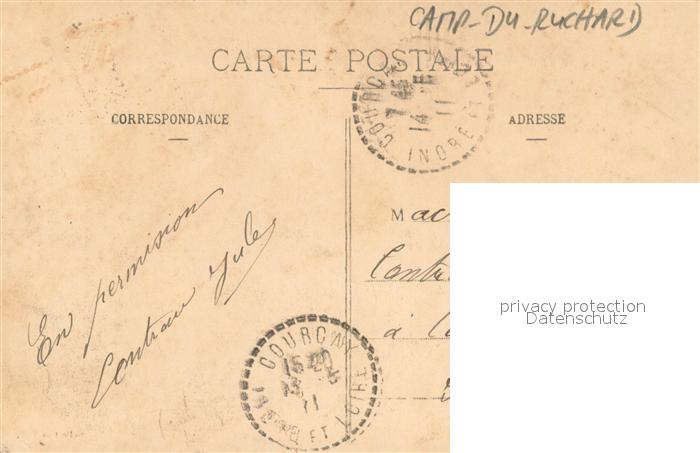 CAMP-DU-RUCHARD
CARTE POSTALE
CORRESPONDANCE
ADRESSE
COURC
7 45
14
11
INDRE ET
En permission
Contrau Jules
M
à
COURCAY
15
11
INDRE ET LOIRE
privacy protection
Datenschutz